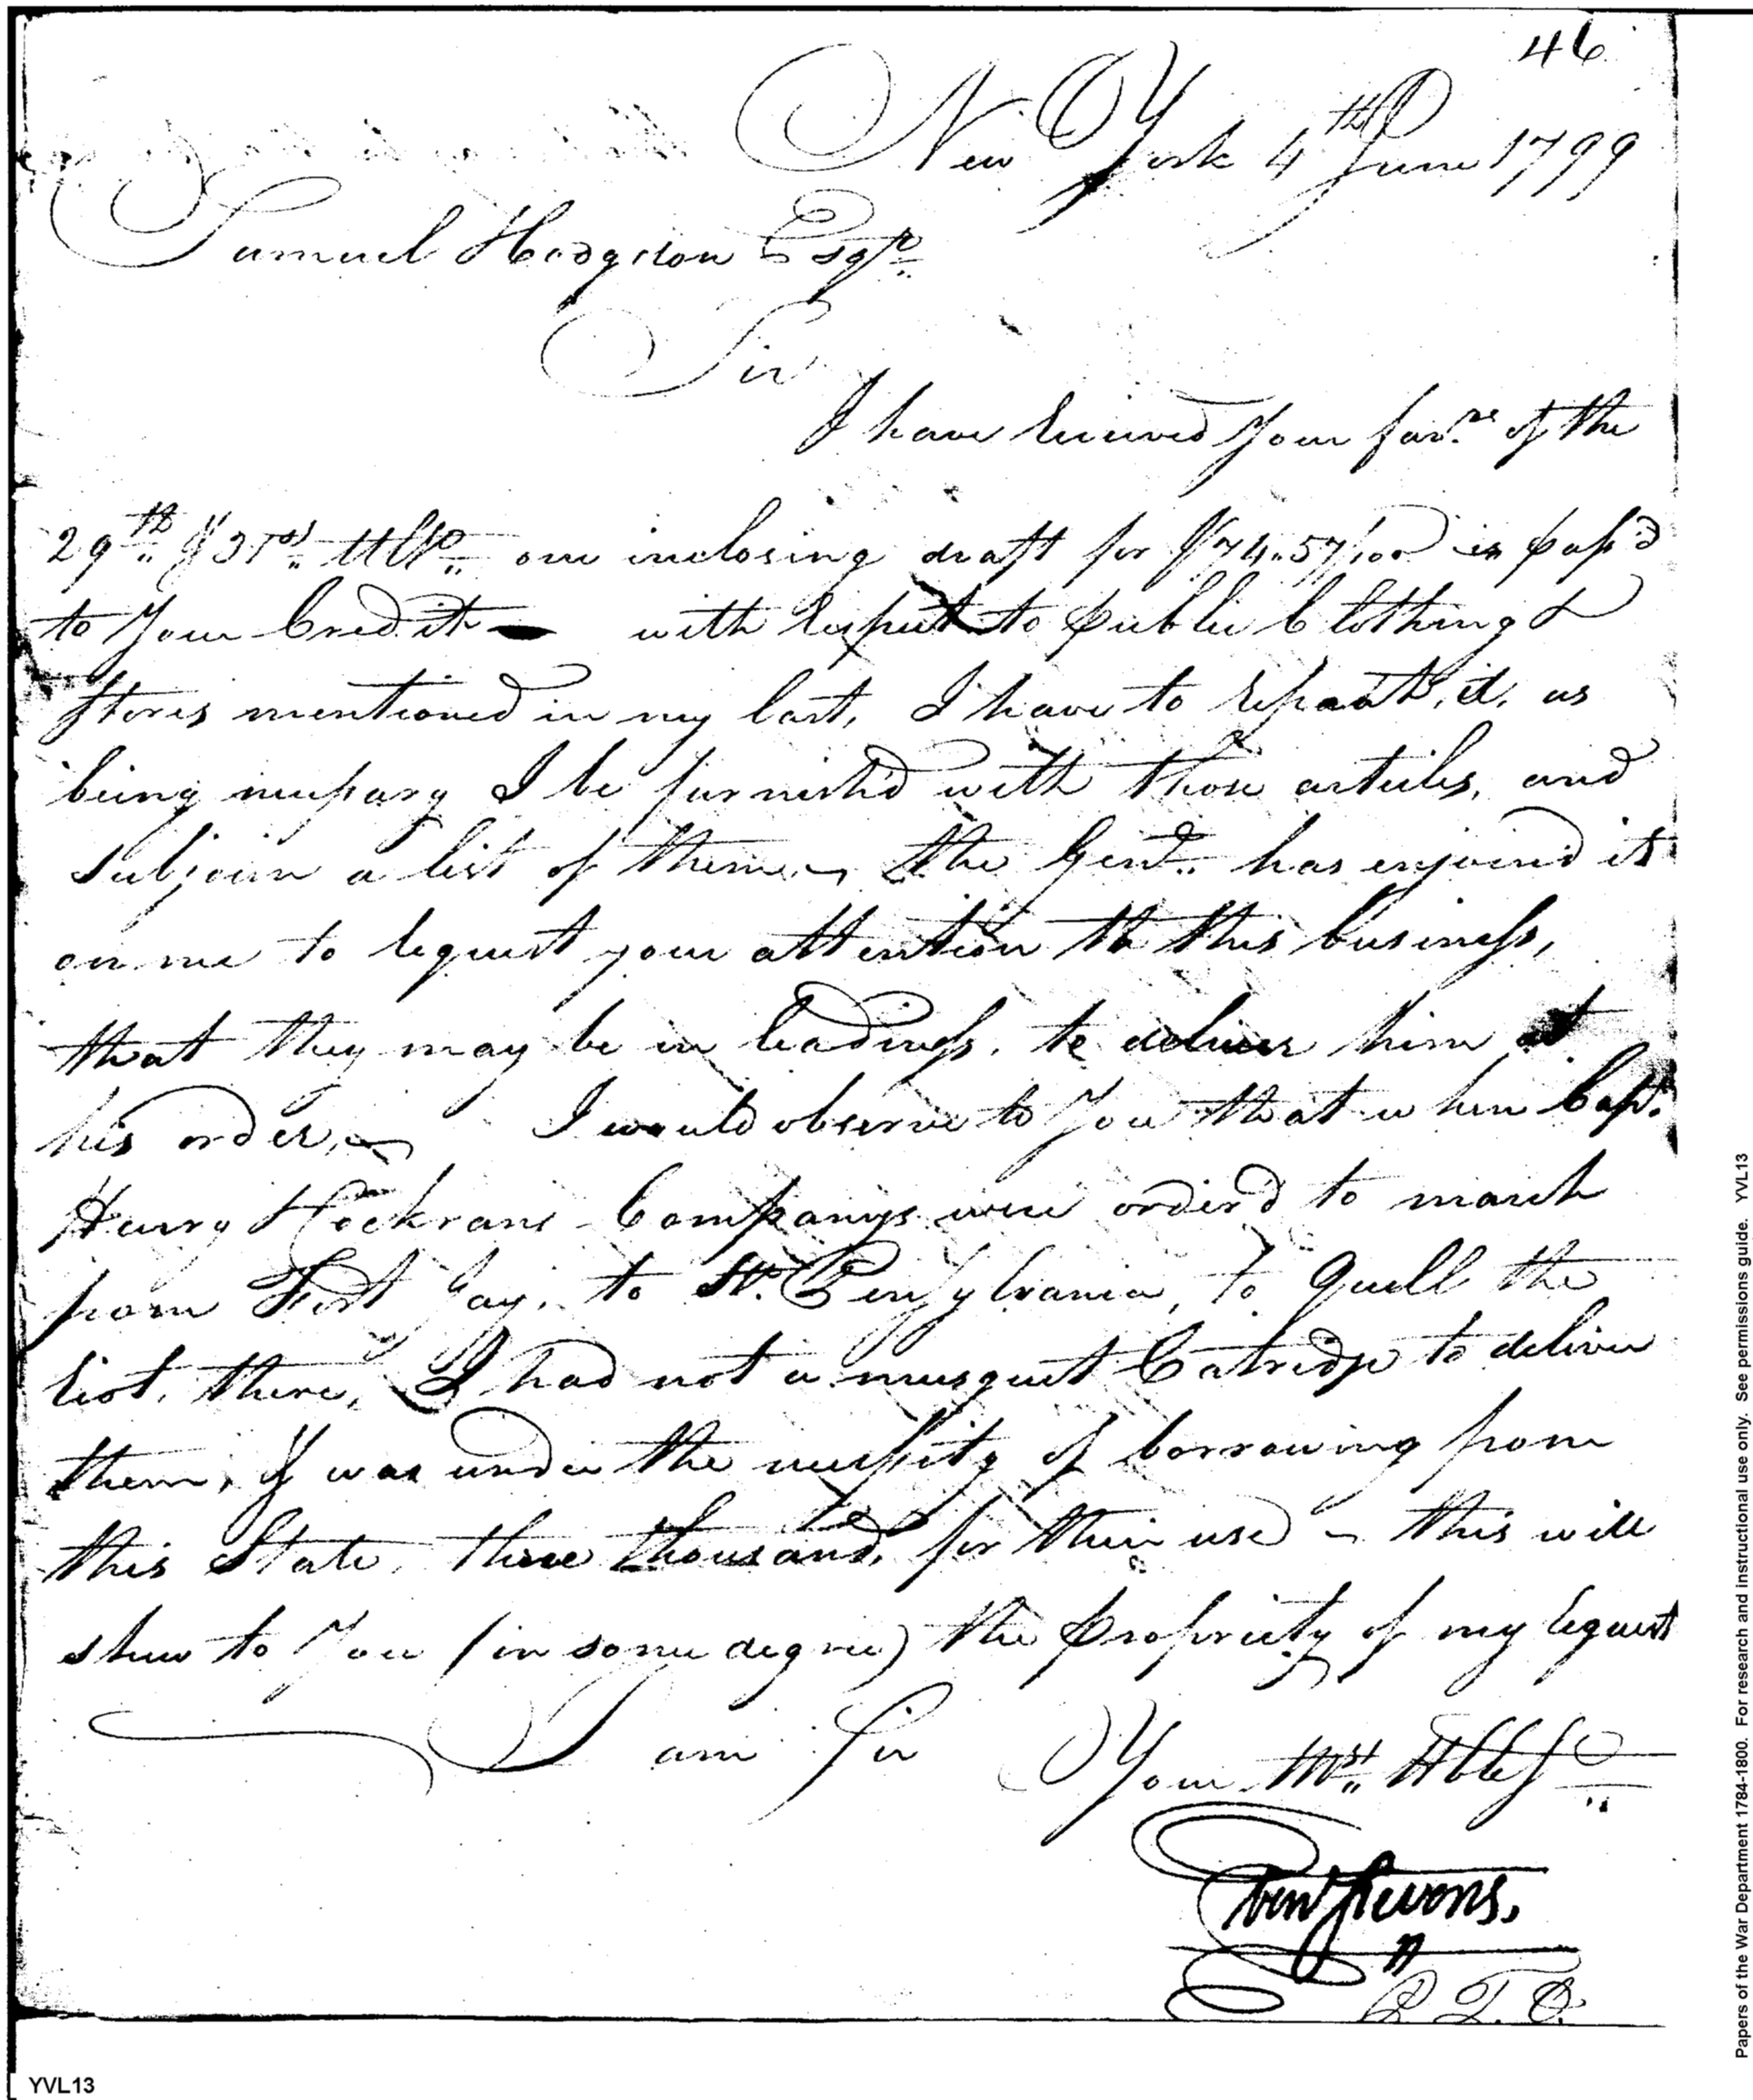 46
New York 4th June 1799
Samuel Hodgdon Esqr.
Sir
I have received Your favrs. of the
29th & 31st Ulto. one inclosing draft for $74.57/100 is pass'd
to Your Credit — with respect to public Clothing &
stores mentioned in my last, I have to repeat, it, as
being nessary I be furnish'd with those articles, and
subjoin a list of them. — the Genl. has enjoin'd it
on me to request your attention to this business,
that they may be in readiness, to deliver him at
his order, — I would observe to You that when Capt.
Henry & Cockrans Companys were order'd to march
from Fort Jay, to Pensylvania, to Quell the
riot, there, I had not a musquet Catridge to deliver
them, & was under the nessity of borrowing from
this State, three thousand, for their use — this will
shew to You (in some degree) the propriety of my request
I am Sir Your Mst. Hble S
R. T. O.
YVL13
Papers of the War Department 1784-1800. For research and instructional use only. See permissions guide. YVL13